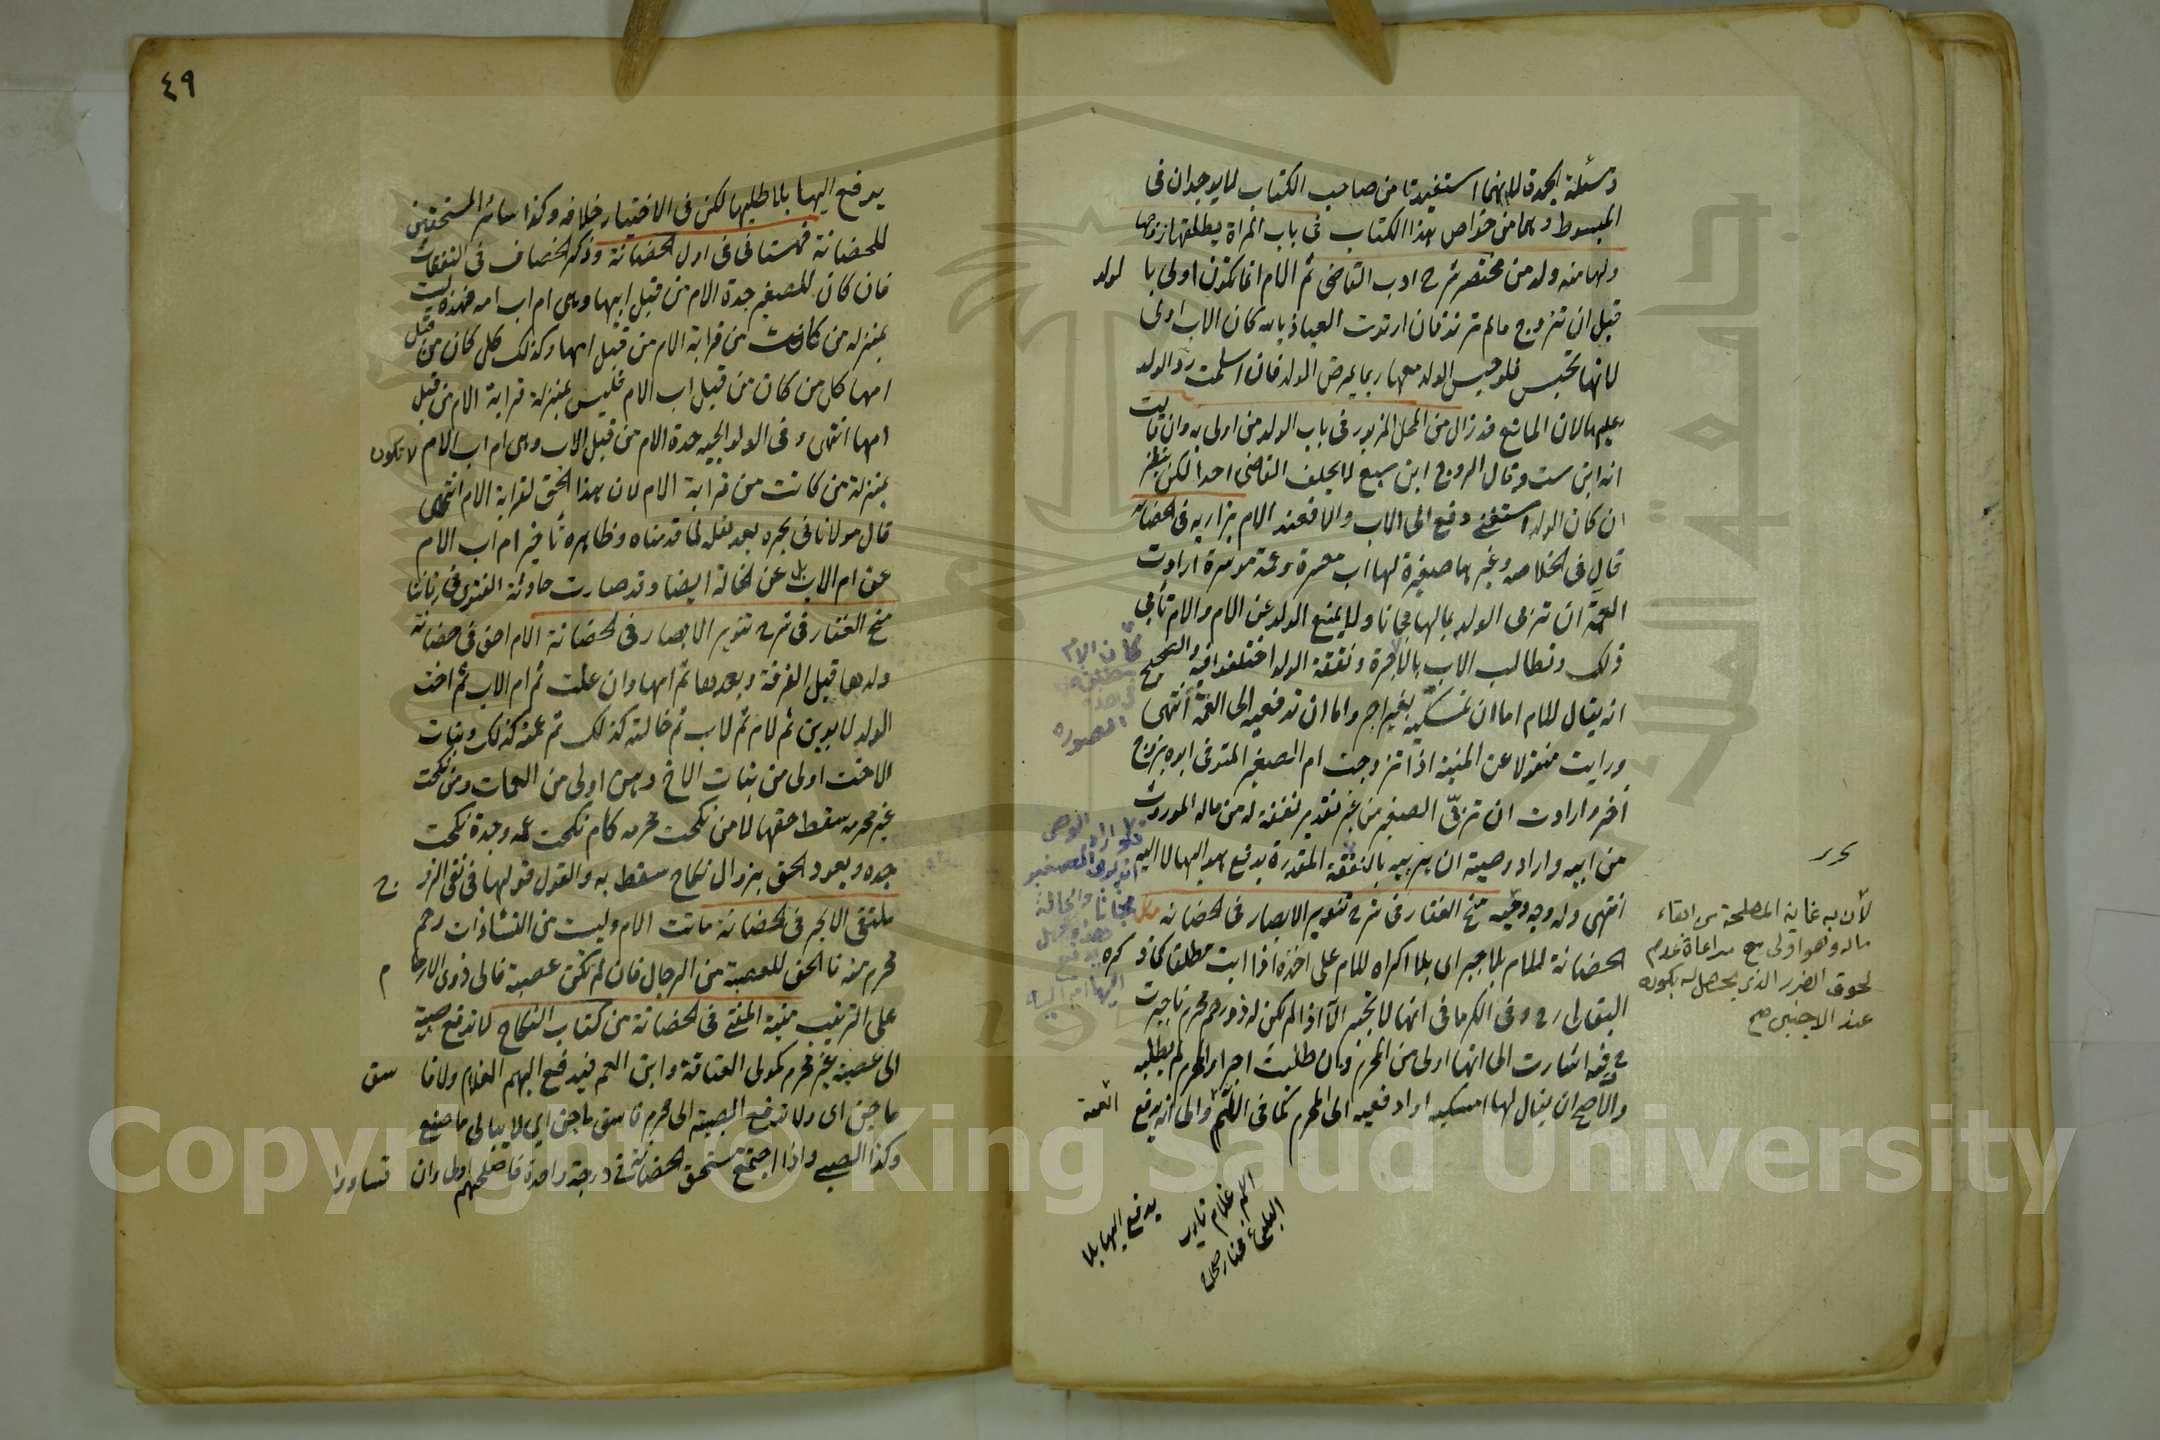 ومسئلة الجدة لانهما استفيدتا من صاحب الكتاب لا يوجدان في
المبسوط وهما من خواص هذا الكتاب في باب المراة يطلقها زوجها
ولها منه ولد من مختصر شرح ادب القاضي ثم الام انما تكون اولى بالولد
قبل ان تتزوج ما لم ترتد فان ارتدت العياذ بالله كان الاب اولى
لانها تحبس فلو حبس الولد معها ربما يمرض الولد فان اسلمت رد الولد
عليها لان المانع قد زال من المحل المزبور في باب الولد من اولى به وان قالت
انه ابن ست وقال الزوج ابن سبع لا يحلف القاضي احدا لكن ينظر
ان كان الولد استغنى دفع الى الاب والا فعند الام بزازيه في الحضانة
قال في الخلاصه وغيرها صغيرة لها اب معسر وعمة موسرة ارادت
العمة ان تربى الولد بمالها مجانا ولا يمنع الولد عن الام والام تأبى
ذلك وتطالب الاب بالاجرة ونفقة الولد اختلفوا فيه والصحيح
انه يقال للام اما ان تمسكيه بغير اجر واما ان تدفعيه الى العمة انتهى
ورايت منقولا عن المنية اذا تزوجت ام الصغير المتوفى ابوه بزوج
آخر وارادت ان تربى الصغير من غير تقدير نفقة له من ماله الموروث
من ابيه واراد وصيه ان يربيه بالنفقة المقدرة يدفع هو اليها لا اليه
انتهى وله وجه وجيه منح الغفار في شرح تنوير الابصار في الحضانه
الحضانة للام بلا جبر اى بلا اكراه للام على اخذه اذا ابت مطلقا كما ذكره
البقالى رح وفى الكرمانى انها لا تجبر الا اذا لم يكن له ذو رحم محرم
وفيه اشارت الى انها اولى من المحرم وان طلبت اجرا والمحرم لم يطلبه
والاصح ان يقال لها امسكيه او ادفعيه الى المحرم كما في
العمة
كان الام
مطلقة
الصوره
تحرر
لأن به غاية المصلحة من ابقاء
ماله وهو اولى مع مراعاة عدم
لحوق الضرر الذي يحصل له بكونه
عند الاجنبى صح
يدفع اليها بلا
٤٩
يدفع اليها بلا طلبها لكن في الاختيار خلافه وكذا سائر المستحقين
للحضانة قهستانى في اول الحضانة وذكر الخصاف في النفقات
فان كان للصغير جدة الام من قبل ابيها وهى ام اب امه فهذه ليست
بمنزله من كانت من قرابة الام من قبل امها وكذلك كل كان من قبل
امها كل من كان من قبل اب الام فليس بمنزلة قرابة الام من قبل
امها انتهى وفى الولوالجيه جدة الام من قبل الاب وهى ام اب الام لا تكون
بمنزلة من كانت من قرابة الام لان هذا الحق لقرابة الام انتهى
قال مولانا في بحره بعد نقله لما قدمناه وظاهره تأخير ام اب الام
عن ام الاب بل عن الخالة ايضا وقد صارت حادثة الفتوى في زماننا
منح الغفار في شرح تنوير الابصار في الحضانة الام احق في حضانة
ولدها قبل الفرقة وبعدها ثم امها وان علت ثم ام الاب ثم اخت
الولد لابوين ثم لام ثم لاب ثم خالته كذلك ثم عمته كذلك وبنات
الاخت اولى من بنات الاخ وهن اولى من العمات ومن نكحت
غير محرمه سقط حقها لا من نكحت محرمه كام نكحت عمه وجدة نكحت
جده ويعود الحق بزوال نكاح سقط به والقول قولها في نفى الزوج
ملتقى الابحر في الحضانة ماتت الام وليست من النساء ذات رحم
محرم منه فالحق للعصبة من الرجال فان لم تكن عصبة فالى ذوى الارحام
على الترتيب منية المفتى في الحضانة من كتاب النكاح لا تدفع صبية
الى عصبة غير محرم كمولى العتاقة وابن العم فيدفع اليهم الغلام ولا فاسق
ماجن اى ولا تدفع الصبية الى محرم فاسق ماجن اي لا يبالى ما صنع
وكذا الصبى واذا اجتمع مستحق الحضانة في درجة واحدة فاصلحهم اولى وان تساووا
Copyright © King Saud University